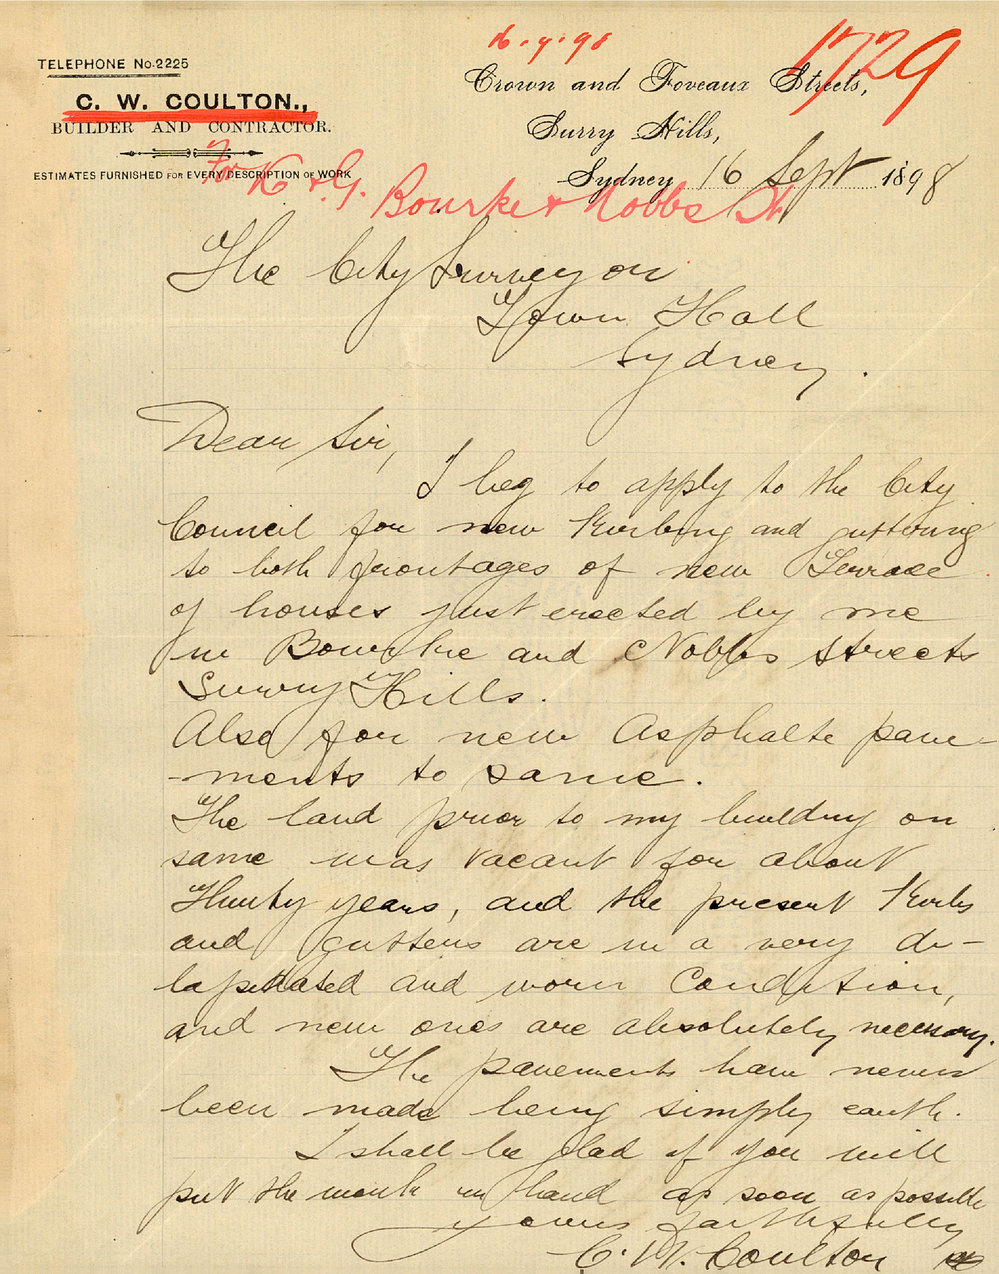 16.9.98
1729
TELEPHONE No. 2225
C. W. COULTON.,
BUILDER AND CONTRACTOR.
ESTIMATES FURNISHED FOR EVERY DESCRIPTION OF WORK
Crown and Foveaux Streets,
Surry Hills,
Sydney 16 Sept 1898
For K & G. Bourke & Nobbs St
The City Surveyor
Town Hall
Sydney.
Dear Sir,
I beg to apply to the City
Council for new Kurbing and guttering
to both frontages of new Terrace
of houses just erected by me
in Bourke and Nobbs Streets
Surry Hills.
Also for new Asphalte pave-
-ments to same.
The land prior to my building on
same was vacant for about
Thirty years, and the present Kurbs
and gutters are in a very di-
lapidated and worn Condition,
and new ones are absolutely necessary.
The pavements have never
been made being simply earth.
I shall be glad if you will
put the work in hand as soon as possible
Yours faithfully
C. W. Coulton